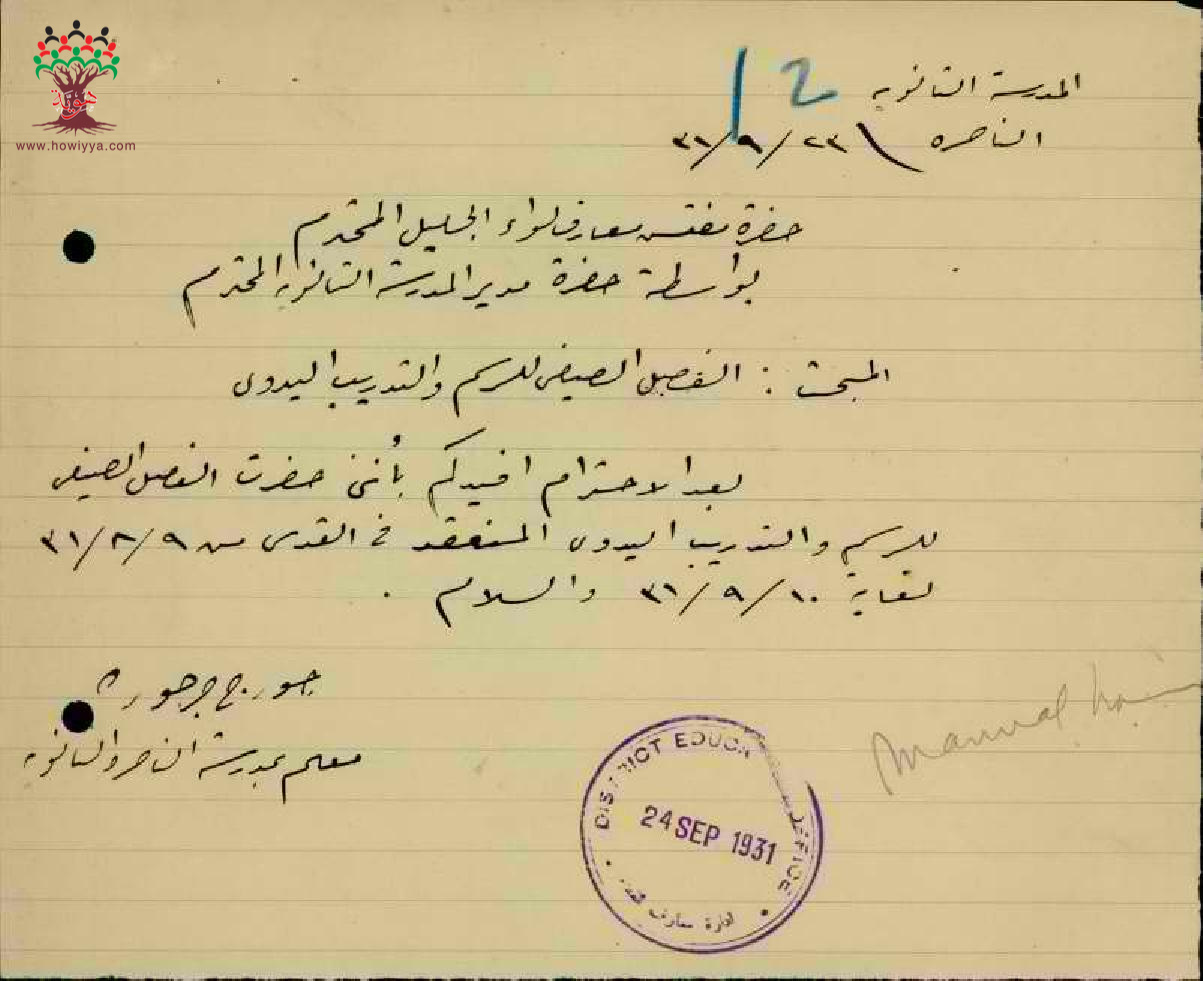 المدرسة الثانويه
12
الناصره ٢٣/٩/٣١
حضرة مفتش معارف لواء الجليل المحترم
بواسطة حضرة مدير المدرسة الثانويه المحترم
المبحث : الفصل الصيفي للرسم والتدريب اليدوي
بعد الاحترام افيدكم بأنني حضرت الفصل الصيفي
للرسم والتدريب اليدوي المنعقد في القدس من ٩/٨/٣١
لغاية ١٠/٩/٣١ والسلام .
جورج جرجوره
معلم بمدرسة الناصره الثانويه
Manual
DISTRICT EDUCA OFFICE
24 SEP 1931
ادارة معارف
www.howiyya.com